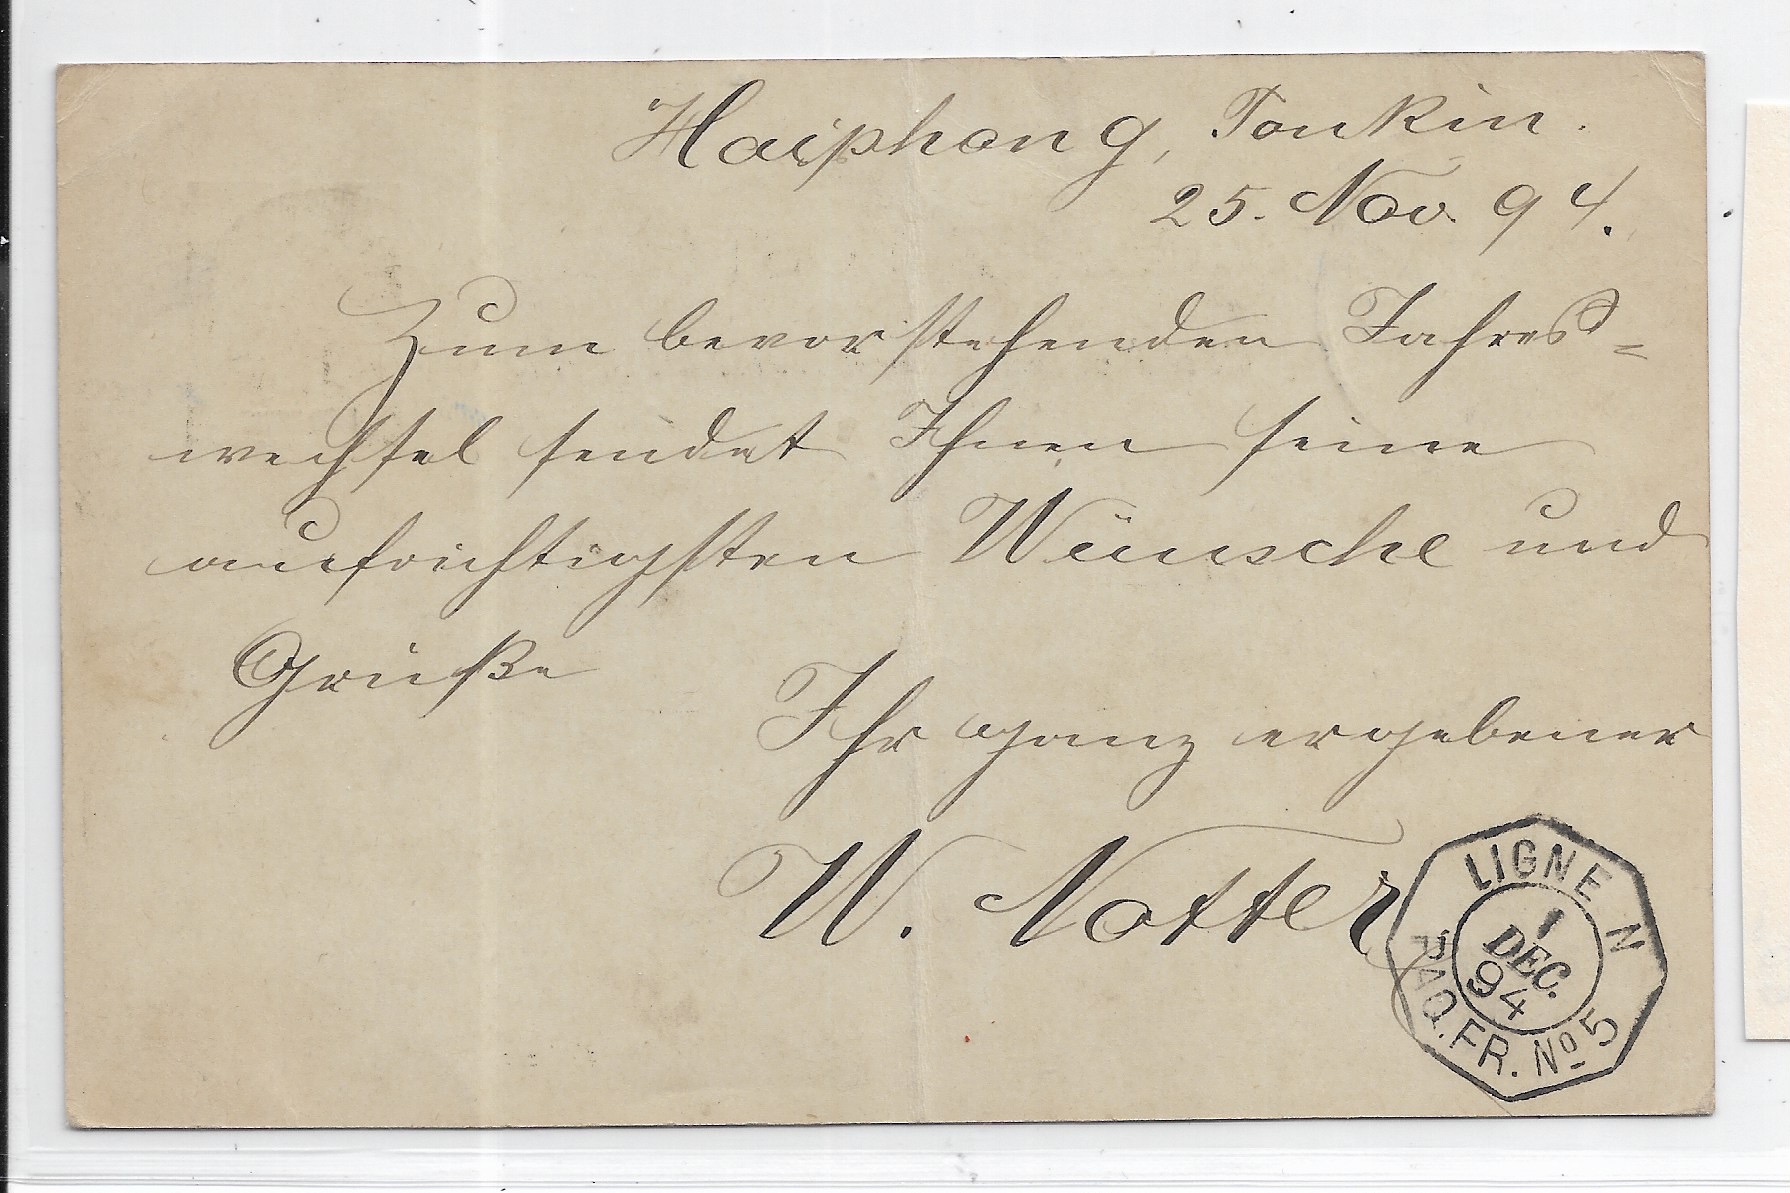 Haiphong, Tonkin.
25. Nov. 94.
Zum bevorstehenden Jahres=
wechsel sendet Ihnen seine
aufrichtigsten Wünsche und
Grüße
Ihr ganz ergebener
W. Notter
LIGNE N
1
DEC.
94
PAQ. FR. No 5